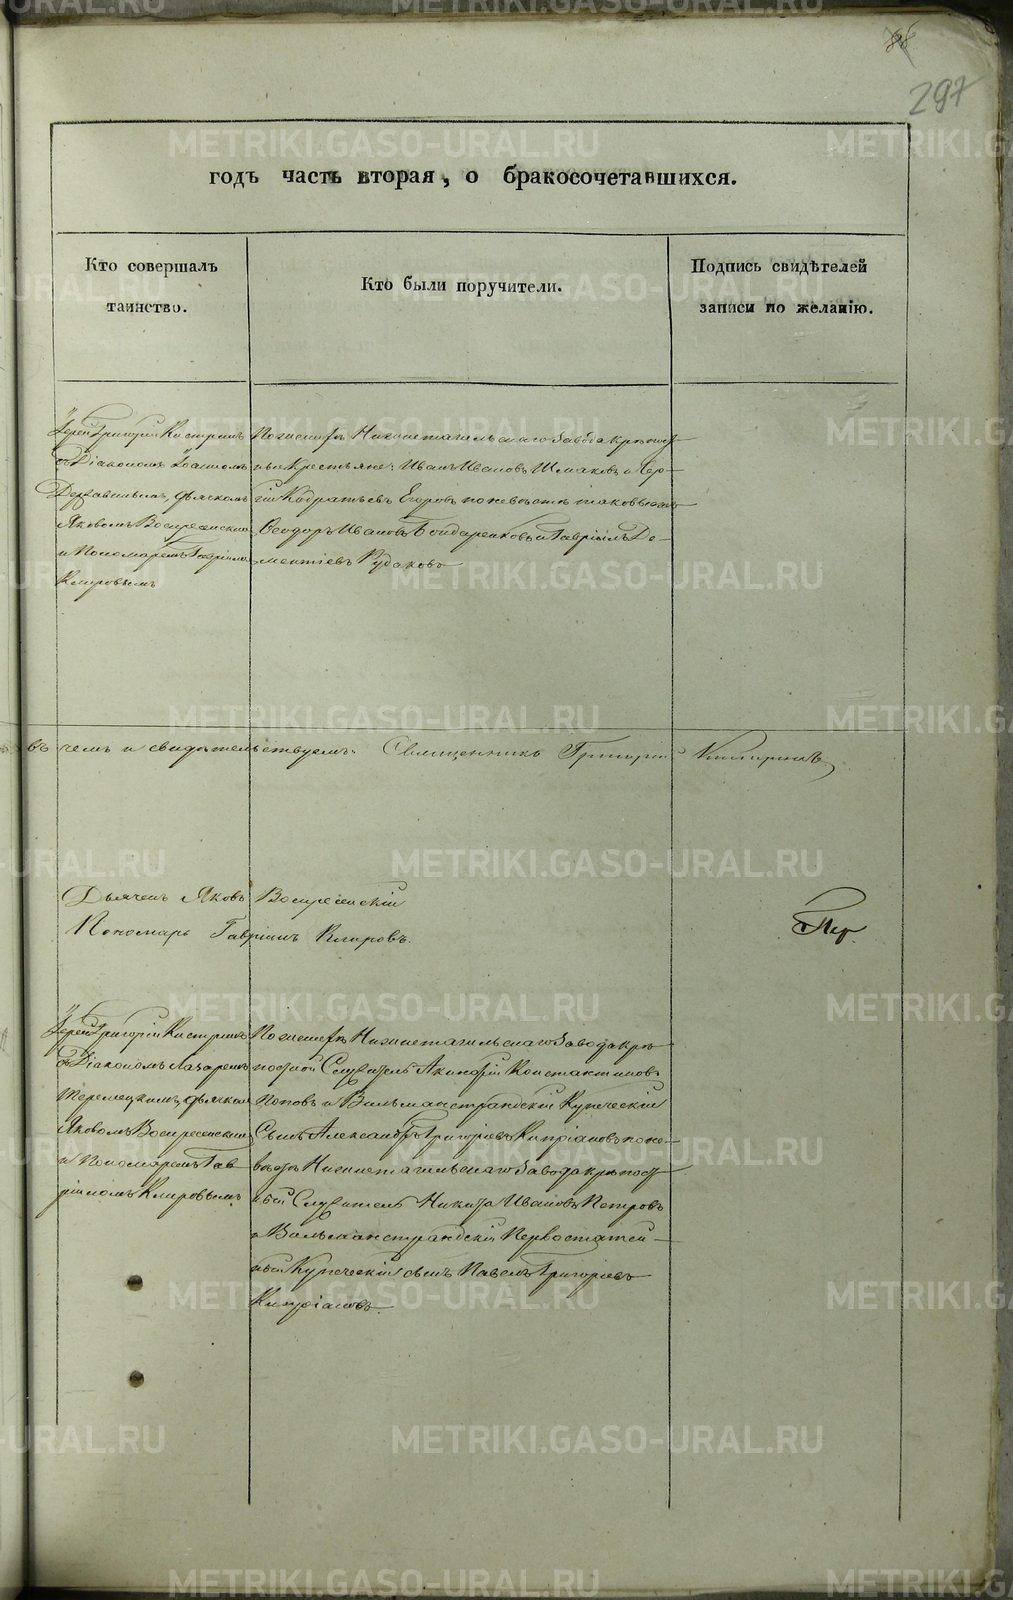 86
297
годъ часть вторая, о бракосочетавшихся.
Кто совершалъ
таинство.
Кто были поручители.
Подпись свидѣтелей
записи по желанію.
Іерей Григорій Кастринъ
съ Діакономъ Іоанномъ
дьячкомъ
Яковомъ Воскресенскимъ
и Пономаремъ Гавріиломъ
Клировымъ
По женихѣ Нижнетагильскаго завода крѣпост
ные Крестьяне: Иванъ Ивановъ Шмаковъ и Сер-
гій Кодратьевъ Егоровъ по невѣстѣ таковыежъ
Ѳеодоръ Ивановъ Бондаренковъ и Гавріилъ Де-
ментіевъ Рудаковъ
въ чемъ и свидѣтельствуемъ: Священникъ Григорій
Дьячекъ Яковъ Воскресенскій
Пономарь Гавріилъ Клировъ.
Іерей Григорій Кастринъ
съ Діакономъ Лазаремъ
дьячкомъ
Яковомъ Воскресенскимъ
и Пономаремъ Гав
ріиломъ Клировымъ.
По женихѣ Нижнетагильскаго Завода крѣ
постной Служитель Акинфій Константиновъ
Поповъ и Вильманстрандскій Купеческій
Сынъ Александръ Григорьевъ Кипріановъ по не-
вѣстѣ Нижнетагильскаго Завода крѣпост
ный Служитель Никита Ивановъ Петровъ
и Вильманстрандскій Первостатей-
ный Купеческій сынъ Павелъ Григорьевъ
Кипріановъ.
METRIKI.GASO-URAL.RU